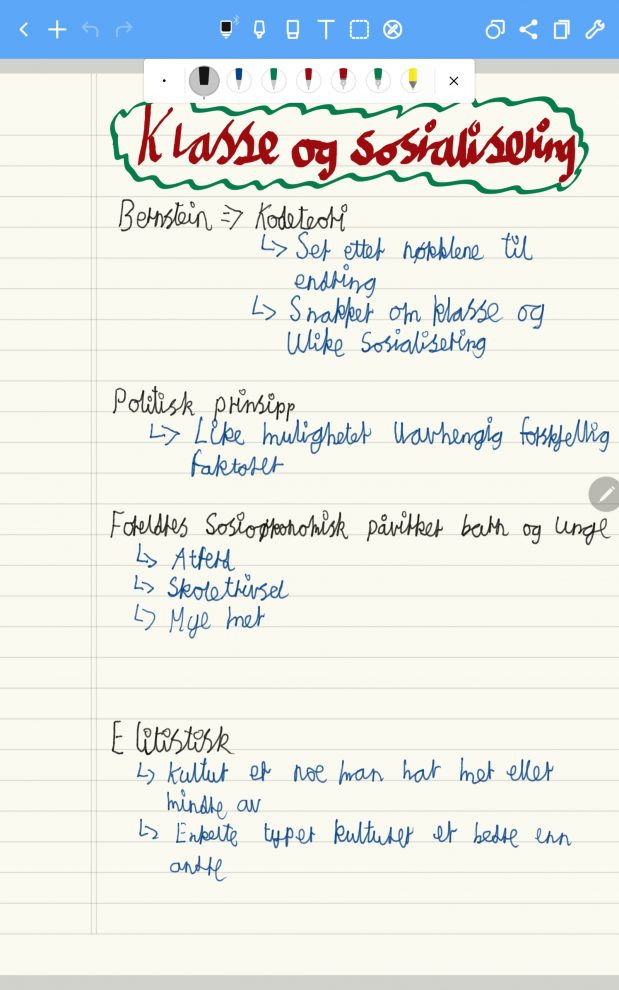 Klasse og sosialisering
Bernstein => Kodeteori
↳ Ser etter nøkklene til
endring
↳ Snakket om klasse og
Ulike Sosialisering
Politisk prinsipp
↳ Like muligheter Uavhengig forskjellig
faktorer
Foreldres Sosioøkonomisk påvirker barn og unge
↳ Atferd
↳ Skoletrivsel
↳ Mye mer
Elitistisk
↳ Kultur er noe man har mer eller
mindre av
↳ Enkelte typer kulturer er bedre enn
andre